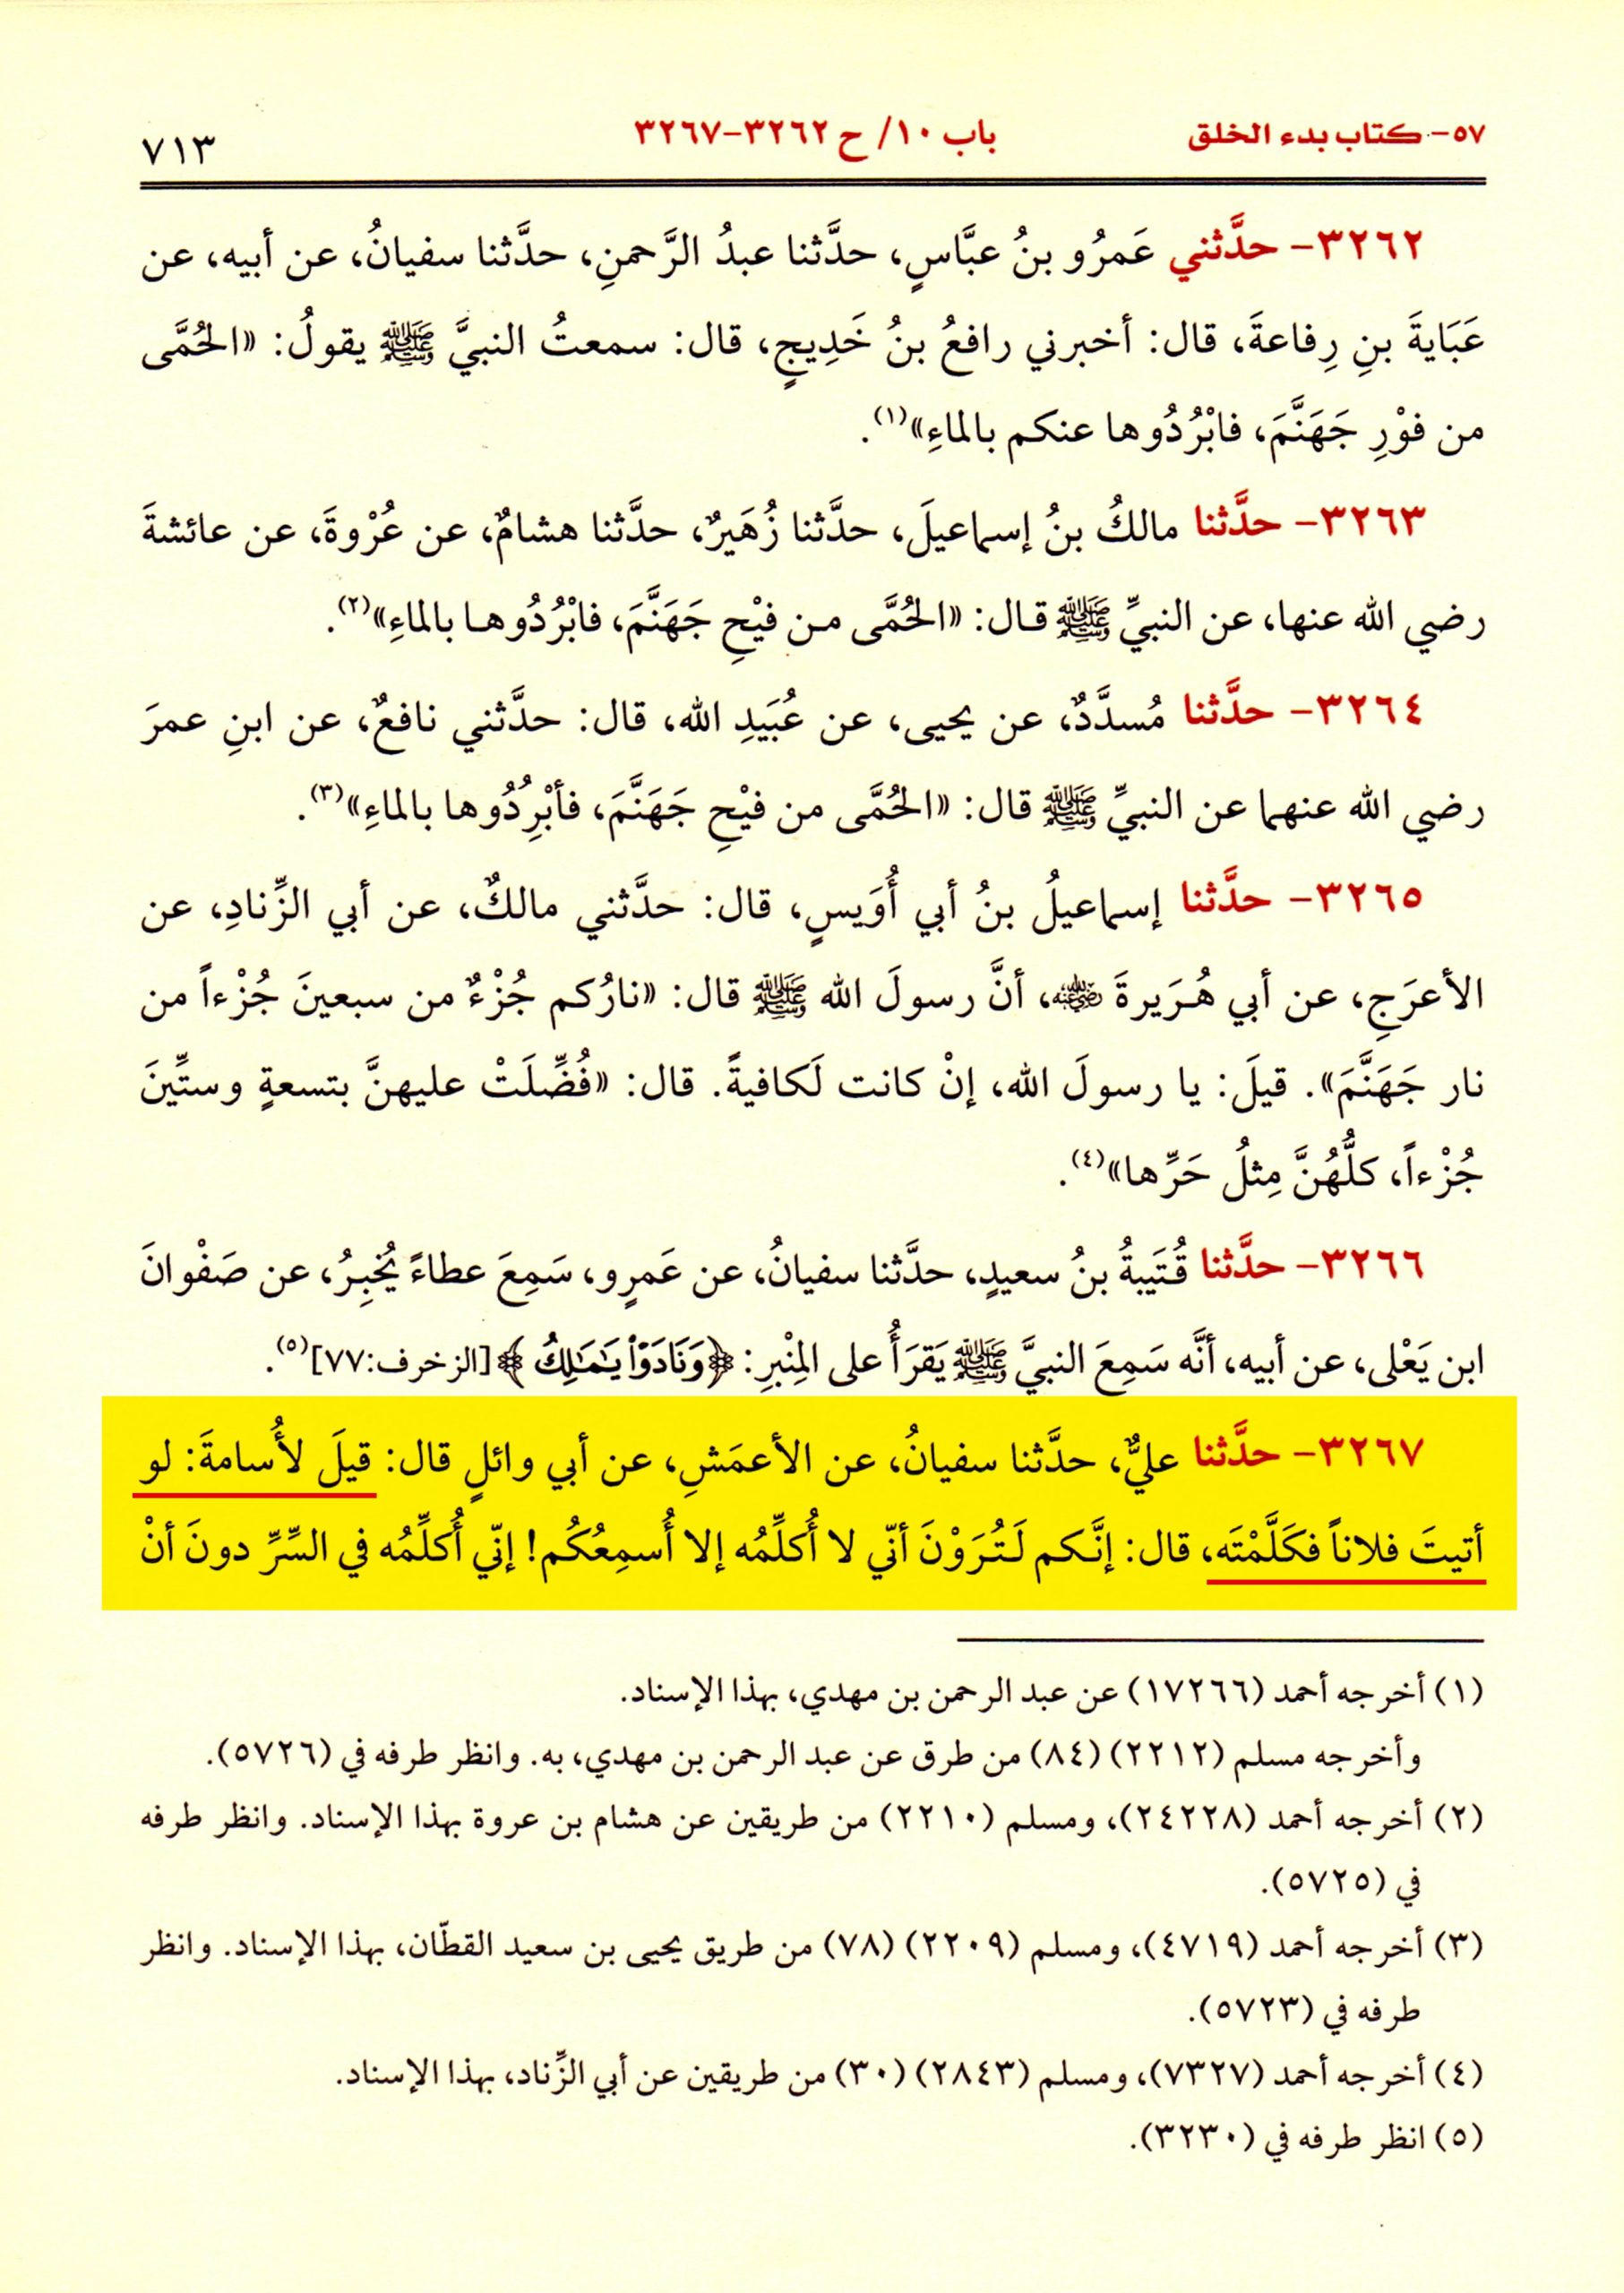 ٥٧- كتاب بدء الخلق باب ١٠/ ح ٣٢٦٢-٣٢٦٧ ٧١٣
٣٢٦٢- حدَّثني عَمرُو بنُ عبَّاسٍ، حدَّثنا عبدُ الرَّحمنِ، حدَّثنا سفيانُ، عن أبيه، عن
عَبَايةَ بنِ رِفاعةَ، قال: أخبرني رافعُ بنُ خَدِيجٍ، قال: سمعتُ النبيَّ ﷺ يقولُ: «الحُمَّى
من فوْرِ جَهَنَّمَ، فابْرُدُوها عنكم بالماءِ»(١).
٣٢٦٣- حدَّثنا مالكُ بنُ إسماعيلَ، حدَّثنا زُهَيرٌ، حدَّثنا هشامٌ، عن عُرْوةَ، عن عائشةَ
رضي الله عنها، عن النبيِّ ﷺ قال: «الحُمَّى من فيْحِ جَهَنَّمَ، فابْرُدُوها بالماءِ»(٢).
٣٢٦٤- حدَّثنا مُسدَّدٌ، عن يحيى، عن عُبَيدِ الله، قال: حدَّثني نافعٌ، عن ابنِ عمرَ
رضي الله عنهما عن النبيِّ ﷺ قال: «الحُمَّى من فيْحِ جَهَنَّمَ، فأبْرِدُوها بالماءِ»(٣).
٣٢٦٥- حدَّثنا إسماعيلُ بنُ أبي أُوَيسٍ، قال: حدَّثني مالكٌ، عن أبي الزِّنادِ، عن
الأعرَجِ، عن أبي هُرَيرةَ ﵁، أنَّ رسولَ الله ﷺ قال: «نارُكم جُزْءٌ من سبعينَ جُزْءاً من
نار جَهَنَّمَ». قيلَ: يا رسولَ الله، إنْ كانت لَكافيةً. قال: «فُضِّلَتْ عليهنَّ بتسعةٍ وستِّينَ
جُزْءاً، كلُّهُنَّ مِثلُ حَرِّها»(٤).
٣٢٦٦- حدَّثنا قُتَيبةُ بنُ سعيدٍ، حدَّثنا سفيانُ، عن عَمرٍو، سَمِعَ عطاءً يُخبِرُ، عن صَفْوانَ
ابن يَعْلى، عن أبيه، أنَّه سَمِعَ النبيَّ ﷺ يَقرَأُ على المِنْبرِ: ﴿وَنَادَوْاْ يَـٰمَـٰلِكُ﴾ [الزخرف:٧٧](٥).
٣٢٦٧- حدَّثنا عليٌّ، حدَّثنا سفيانُ، عن الأعمَشِ، عن أبي وائلٍ قال: قيلَ لأُسامةَ: لو
أتيتَ فلاناً فكَلَّمْتَه، قال: إنَّكم لَتُرَوْنَ أنّي لا أُكلِّمُه إلا أُسمِعُكُم! إنّي أُكلِّمُه في السِّرِّ دونَ أنْ
(١) أخرجه أحمد (١٧٢٦٦) عن عبد الرحمن بن مهدي، بهذا الإسناد.
وأخرجه مسلم (٢٢١٢) (٨٤) من طرق عن عبد الرحمن بن مهدي، به. وانظر طرفه في (٥٧٢٦).
(٢) أخرجه أحمد (٢٤٢٢٨)، ومسلم (٢٢١٠) من طريقين عن هشام بن عروة بهذا الإسناد. وانظر طرفه
في (٥٧٢٥).
(٣) أخرجه أحمد (٤٧١٩)، ومسلم (٢٢٠٩) (٧٨) من طريق يحيى بن سعيد القطّان، بهذا الإسناد. وانظر
طرفه في (٥٧٢٣).
(٤) أخرجه أحمد (٧٣٢٧)، ومسلم (٢٨٤٣) (٣٠) من طريقين عن أبي الزِّناد، بهذا الإسناد.
(٥) انظر طرفه في (٣٢٣٠).